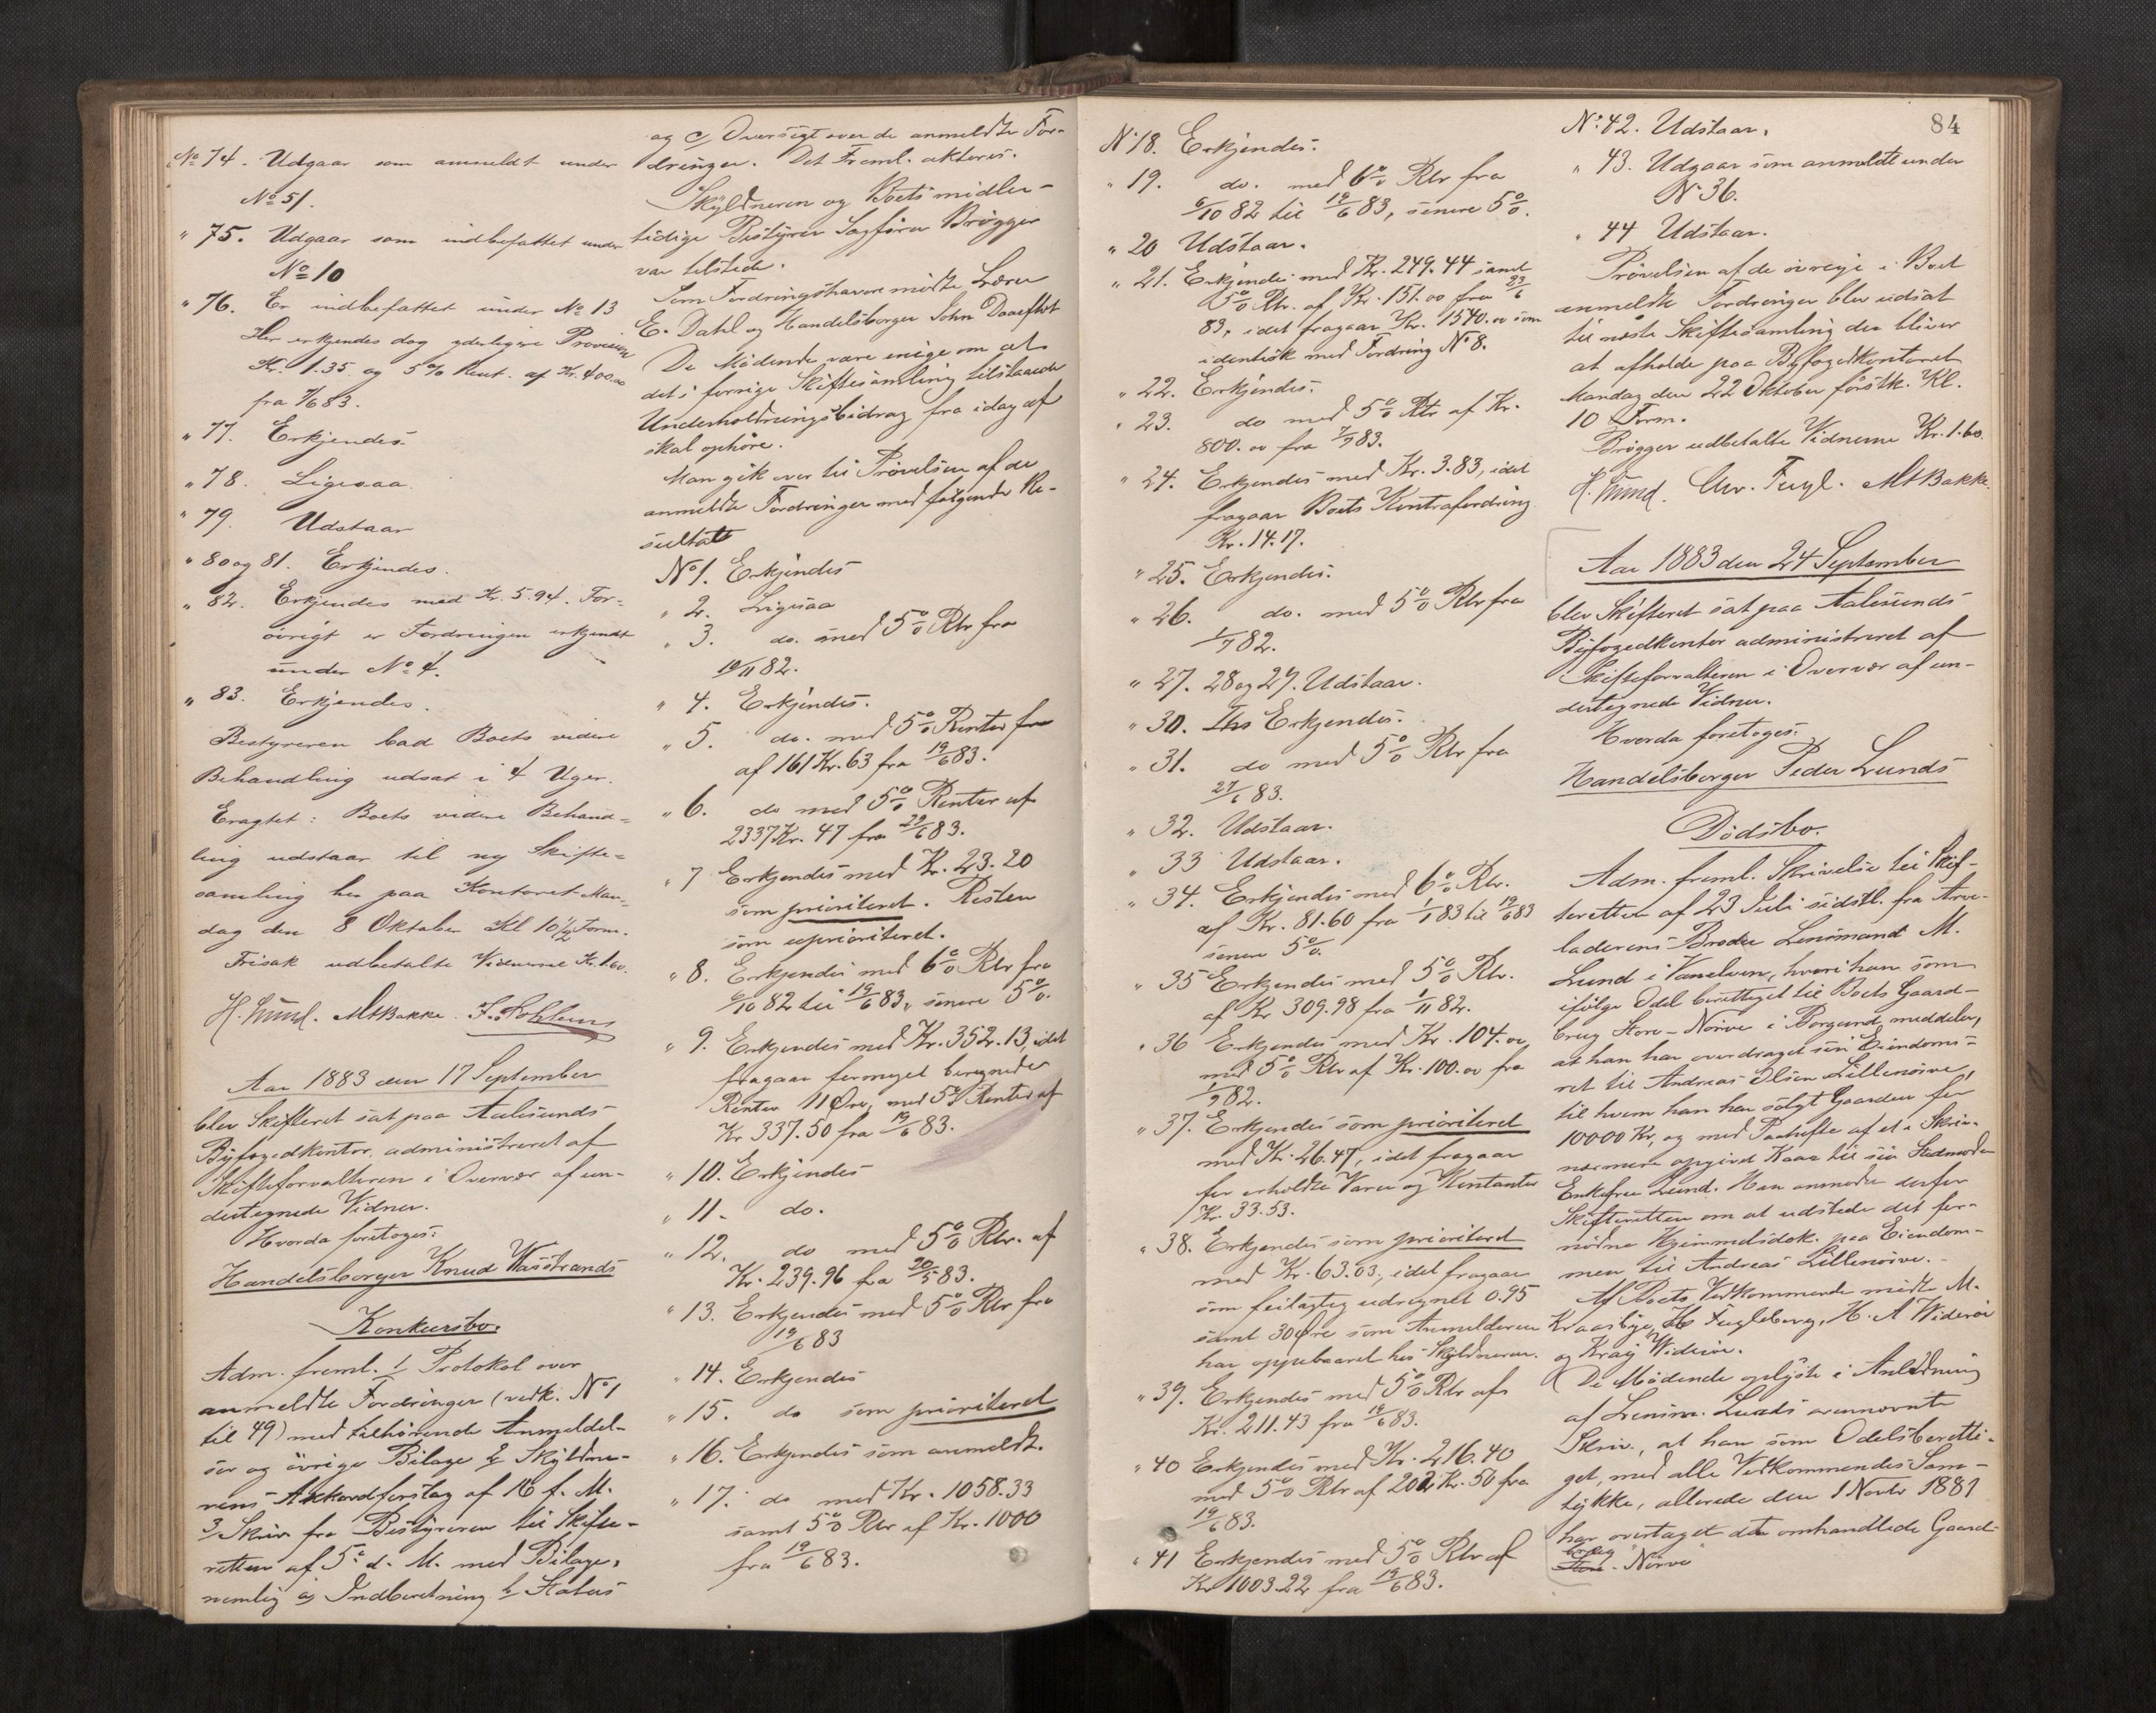 No 74. Udgaar som anmeldt under
No 51.
" 75. Udgaar som indbefattet under
No 10
" 76. Er indbefattet under No 13
Her erkjendes dog yderligere Provision
Kr. 1.35 og 5% Rent. af Kr. 400.00
fra 83.
" 77. Erkjendes.
" 78. Ligesaa.
" 79. Udstaar
" 80 og 81. Erkjendes.
" 82. Erkjendes med Kr. 5.94. For-
øvrigt er Fordringen erkjendt
under No 4.
" 83. Erkjendes.
Bestyreren bad Boets videre
Behandling udsat i 4 Uger.
Eragtet: Boets videre Behand=
ling udstaar til ny Skifte=
samling her paa Kontoret Man-
dag den 8 Oktober Kl 10½ Form.
Frisak udbetalte Vidnerne Kr. 1.60.
H. Lund. MBakke.
Aar 1883 den 17 September
blev Skifteret sat paa Aalesunds
Byfogedkontor, administreret af
Skifteforvalteren i Overvær af un-
dertegnede Vidner.
Hvorda foretoges:
Handelsborger Knud Wasstrands
Konkursbo.
Adm. freml. 1/ Protokol over
anmeldte Fordringer (vedk. No 1
til 49) med tilhørende Anmeldel-
ser og øvrige Bilage 2/ Skyldne-
rens Akkordforslag af 16 f. M.
3/ Skriv. fra Bestyreren til Skifte-
retten af 5. d. M. med Bilage,
nemlig a) Indberetning b) Status
og c) Oversigt over de anmeldte For-
dringer. Det Freml. akteres.
Skyldneren og Boets midler-
tidige Bestyrer Sagfører Brøgger
var tilstede.
Som Fordringshavere mødte Lærer
E. Dahl og Handelsborger John
De Mødende vare enige om at
det i forrige Skiftesamling tilstaaede
Underholdningsbidrag fra idag af
skal ophøre.
Man gik over til Prøvelsen af de
anmeldte Fordringer med følgende Re-
sultat
No 1. Erkjendes
" 2. Ligesaa
" 3. do. med 5% Rtr fra
10/11 82.
" 4. Erkjendes.
" 5. do. med 5% Renter fra
af 161 Kr. 63 fra 19/6 83.
" 6. do med 5% Renter af
2337 Kr. 47 fra 29/6 83.
" 7 Erkjendes med Kr. 23.20
som prioriteret. Resten
som uprioriteret.
" 8. Erkjendes med 6% Rtr fra
6/10 82 til 19/6 83, senere 5%.
" 9. Erkjendes med Kr. 352.13, idet
fragaar formeget beregnede
Renter 11 Øre, med 5% Renter af
Kr 337.50 fra 19/6 83.
" 10. Erkjendes
" 11. do.
" 12. do med 5% Rtr. af
Kr. 239.96 fra 20/5 83.
" 13. Erkjendes med 5% Rtr fra
19/6 83
" 14. Erkjendes
" 15. do som prioriteret
" 16. Erkjendes som anmeldt.
" 17. do med Kr. 1058.33
samt 5% Rtr af Kr. 1000
fra 19/6 83.
No 18. Erkjendes.
" 19. do. med 6% Rtr fra
6/10 82 til 19/6 83, senere 5%.
" 20 Udstaar.
" 21. Erkjendes med Kr. 249.44 samt
5% Rtr. af Kr. 151.00 fra 23/6
83, idet fragaar Kr. 1540.00 som
identisk med Fordring No 8.
" 22. Erkjendes.
" 23. do med 5% Rtr af Kr.
800.00 fra 83.
" 24. Erkjendes med Kr. 3.83, idet
fragaar Boets Kontrafordring
Kr. 14.17.
" 25. Erkjendes.
" 26. do. med 5% Rtr fra
82.
" 27. 28 og 29. Udstaar.
" 30. Erkjendes.
" 31. do med 5% Rtr fra
27/6 83.
" 32. Udstaar.
" 33 Udstaar.
" 34. Erkjendes med 6% Rtr.
af Kr. 81.60 fra 1/1 83 til 19/6 83
senere 5%.
" 35 Erkjendes med 5% Rtr.
af Kr 309.98 fra 1/11 82.
" 36 Erkjendes med Kr. 104.00
med 5% Rtr af Kr. 100.00 fra
82.
" 37. Erkjendes som prioriteret
med Kr. 26.47, idet fragaar
for erholdte Varer og Kontanter
Kr. 33.53.
" 38. Erkjendes som prioriteret
med Kr. 63.03, idet fragaar
som feilagtig udregnet 0.95
samt 30 Øre som Anmelderen
har oppebaaret hos Skyldneren.
" 39. Erkjendes med 5% Rtr af
Kr. 211.43 fra 19/6 83.
" 40 Erkjendes med Kr. 216.40
med 5% Rtr af 202 Kr. 50 fra
19/6 83.
" 41 Erkjendes med 5% Rtr af
Kr 1003.22 fra 19/6 83.
84
No 42. Udstaar.
" 43. Udgaar som anmeldt under
No 36.
" 44 Udstaar.
Prøvelsen af de øvrige i Boet
anmeldte Fordringer blev udsat
til næste Skiftesamling der bliver
at afholde paa Byfogedkontoret
Mandag den 22 Oktober førstk. Kl.
10 Form.
Brøgger udbetalte Vidnerne Kr. 1.60.
H. Lund. Chr. Fugl. MBakke.
Aar 1883 den 24 September
blev Skifteret sat paa Aalesunds
Byfogedkontor administreret af
Skifteforvalteren i Overvær af un-
dertegnede Vidner.
Hvorda foretoges:
Handelsborger Peder Lunds
Dødsbo.
Adm. freml. Skrivelse til Skif-
teretten af 23 Juli sidstl. fra Arve-
laderens Broder Lensmand M.
Lund i Vanelven, hvori han som
ifølge Odel berettiget til Boets Gaard-
brug Store-Nørve i Borgund meddeler,
at han har overdraget sin Eiendoms-
ret til Andreas Olsen Lillenørve,
til hvem han har solgt Gaarden for
10000 Kr, og med Paahefte af et i Skriv.
nærmere opgivet Kaar til sin Stedmoder
Enkefru Lund. Han anmoder derfor
Skifteretten om at udstede det for-
nødne Hjemmelsdok. paa Eiendom-
men til Andreas Lillenørve.
Af Boets Vedkommende mødte M.
Kraasbye, Fugleberg, H. A Widerøe
og Widerøe.
De Mødende oplyste i Anledning
af Lensm. Lunds ovennævnte
Skriv., at han som Odelsberetti-
get, med alle Vedkommendes Sam-
tykke, allerede den 1 Novbr 1881
har overtaget det omhandlede Gaard-
brug
Store-Nørve